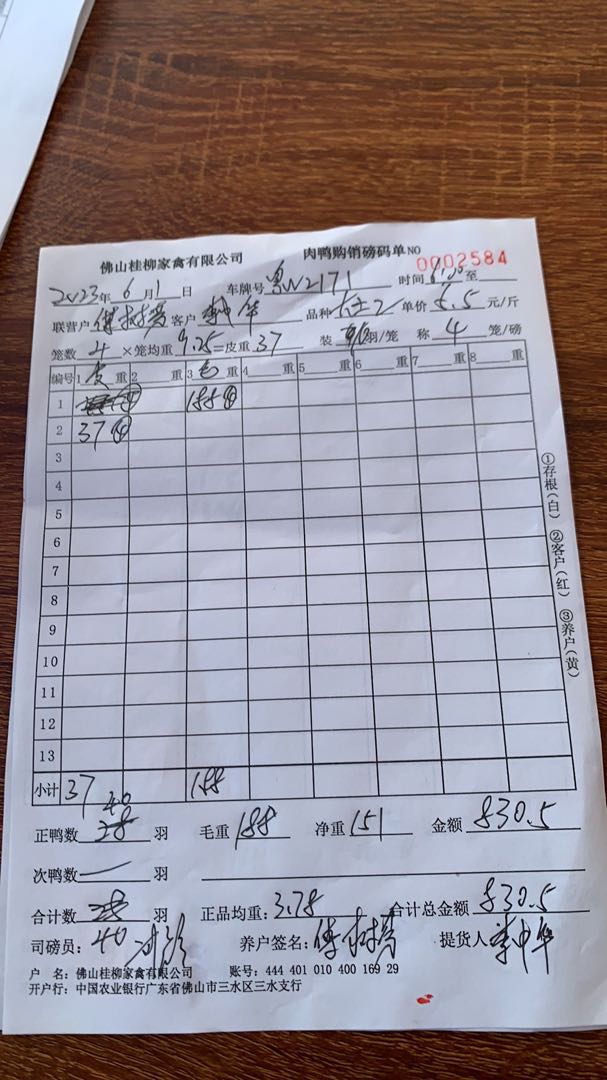 佛山桂柳家禽有限公司 肉鸭购销磅码单 NO 0002584
2023年6月1日 车牌号 粤W2171 时间 至
联营户 客户 李中华 品种 单价 5.5 元/斤
笼数 4 ×笼均重 9.25=皮重 37 装 羽/笼 称 4 笼/磅
编号 1 皮 重 2 重 3 毛 重 4 重 5 重 6 重 7 重 8 重
1 188④
2 37④
3
4
5
6
7
8
9
10
11
12
13
小计 37 188
正鸭数 40 羽 毛重 188 净重 151 金额 830.5
次鸭数 — 羽
合计数 羽 正品均重: 3.78 合计总金额 830.5
司磅员: 40 养户签名: 提货人 李中华
户 名: 佛山桂柳家禽有限公司 账号: 444 401 010 400 169 29
开户行: 中国农业银行广东省佛山市三水区三水支行
①存根(白) ②客户(红) ③养户(黄)